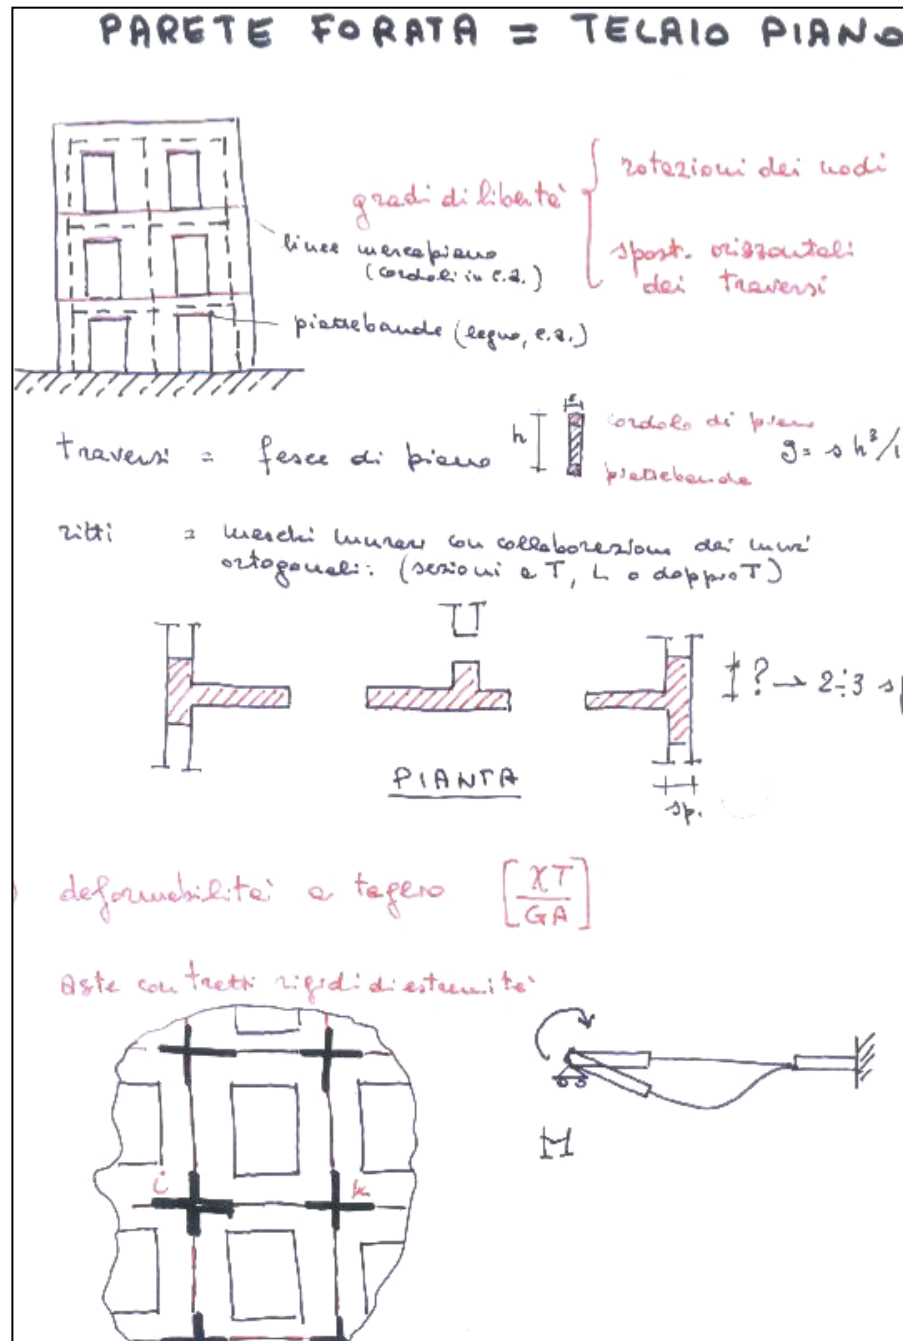 PARETE FORATA = TELAIO PIANO
gradi di libertà
rotazioni dei nodi
spost. orizzontali
dei traversi
linee marcapiano
(cordoli in c.a.)
piattebande (legno, c.a.)
traversi = fasce di piano
h
s
cordolo di piano
piattebanda
J = s h³/1
ritti = maschi murari con collaborazione dei muri
ortogonali: (sezioni a T, L o doppio T)
? → 2÷3 sp
PIANTA
sp.
deformabilità a taglio [χT/GA]
aste con tratti rigidi di estremità
i
k
M